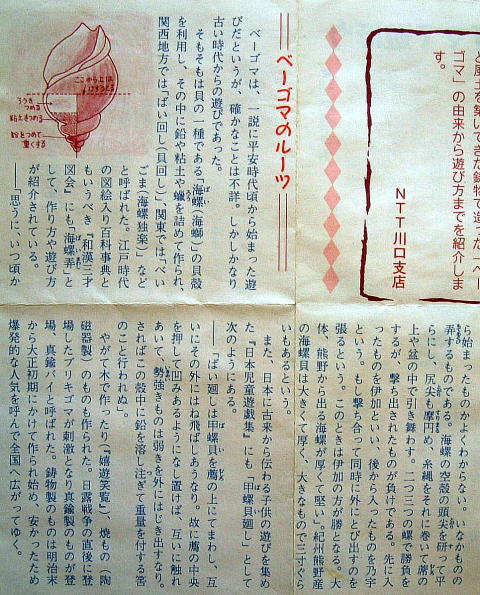 と風土を築いてきた鋳物で造った「ベー
ゴマ」の由来から遊び方までを紹介しま
す。
NTT川口支店
ベーゴマのルーツ
ベーゴマは、一説に平安時代頃から始まった遊
びだというが、確かなことは不詳。しかしかなり
古い時代からの遊びであった。
そもそもは貝の一種である「海螺(海螄)」の貝殻
を利用し、その中に鉛や粘土や蠟を詰めて作られ、
関西地方では「ばい回し(貝回し)」、関東では「べい
ごま(海螺独楽)」など
と呼ばれた。江戸時代
の図絵入り百科事典と
もいうべき『和漢三才
図会』にも「海螺弄」と
して、作り方や遊び方
が紹介されている。
──「思うに、いつ頃か
ここから上は
ろうを
つめる
粘土をつめる
鉛をつめて
重くする
ら始まったものかよくわからない。いなかものの
弄するものである。海螺の空殻の頭尖を研って平
らにし、尻尖も摩円め、糸縄をそれに巻いて席の
上や盆の中で引き舞わす。二つ三つの螺で勝負を
するが、撃ち出されたものが負けである。先に入
ったものを伊加といい、後から入ったものを乃宇
という。もし撃ち合って同時に外にとび出すのを
張るという。このときは伊加の方が勝となる。大
体、熊野から出る海螺が厚くて堅い」。紀州熊野産
の海螺貝は大きくて厚く、大きなもので三寸ぐら
いもあるという。
また、日本に古来から伝わる子供の遊びを集め
た『日本児童遊戯集』にも「甲螺貝廻し」として
次のようにある。
──「ばい廻しは甲螺貝を薦の上にてまわし、互
いにその外にはね飛ばしあうなり。故に薦の中央
を押して凹みあるようになし置けば、互いに触れ
あいて、勢強きものは弱きを外にはじき出すなり。
さればこの殻中に鉛を溶し注ぎて重量を付する等
のこと行われぬ」。
やがて木で作ったり(『嬉遊笑覧』)、焼もの(陶
磁器製)のものも作られた。日露戦争の直後に登
場した「ブリキゴマ」が刺激となり真鍮製のものが登
場、真鍮バイと呼ばれた。鋳物製のものは明治末
から大正初期にかけて作られ始め、安かったため
爆発的な人気を呼んで全国へ広がってゆく。